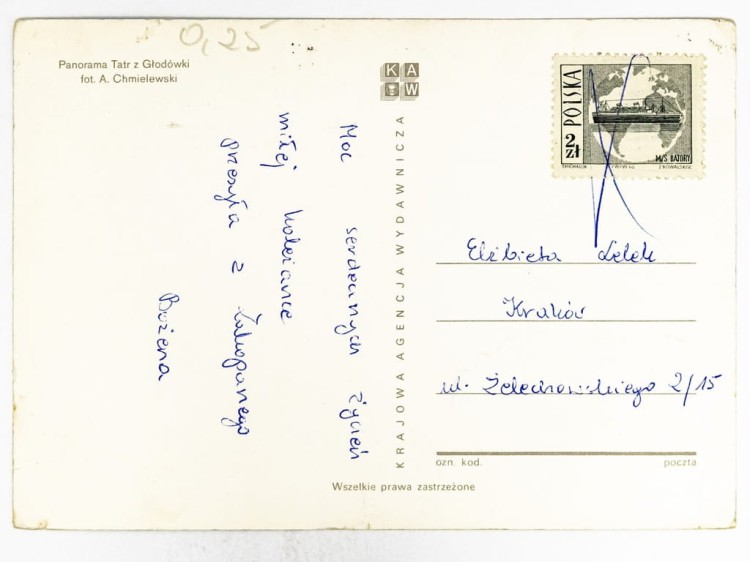 0,25
Panorama Tatr z Głodówki
fot. A. Chmielewski
Moc serdecznych życzeń
miłej koleżance
przesyła z Zakopanego
Bożena
KAW
KRAJOWA AGENCJA WYDAWNICZA
POLSKA
2 zł
M/S BATORY
Elżbieta Lelek
Kraków
ul. Żelechowskiego 2/15
ozn. kod.
poczta
Wszelkie prawa zastrzeżone